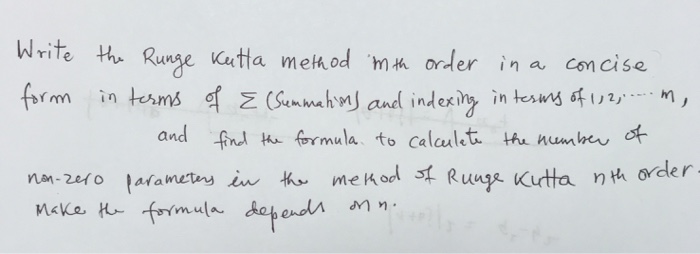 Write the Runge Kutta method mth order in a concise
form in terms of Σ (Summations) and indexing in terms of 1,2,.... m,
and find the formula to calculate the number of
non-zero parameters in the method of Runge Kutta nth order.
Make the formula depends on n.